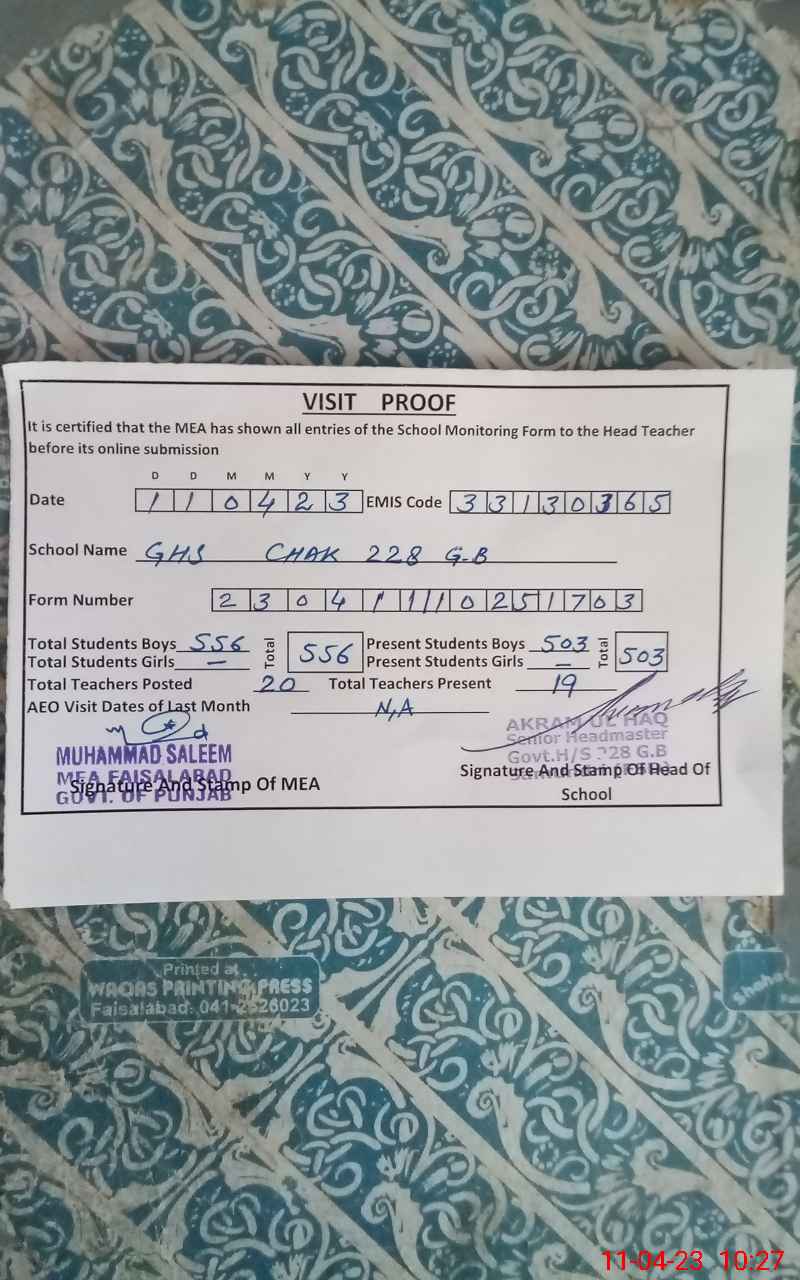 VISIT PROOF
It is certified that the MEA has shown all entries of the School Monitoring Form to the Head Teacher
before its online submission
D D M M Y Y
Date 1 1 0 4 2 3 EMIS Code 3 3 1 3 0 3 6 5
School Name GHS CHAK 228 G.B
Form Number 2 3 0 4 1 1 1 0 2 5 1 7 0 3
Total Students Boys 556 Total 556 Present Students Boys 503 Total 503
Total Students Girls — Present Students Girls —
Total Teachers Posted 20 Total Teachers Present 19
AEO Visit Dates of Last Month N,A
MUHAMMAD SALEEM
MEA FAISALABAD
GOVT. OF PUNJAB
Signature And Stamp Of MEA
AKRAM UL HAQ
Senior Headmaster
Govt.H/S 228 G.B
Signature And Stamp Of Head Of
School
Printed at
WAQAS PRINTING PRESS
Faisalabad: 041-2626023
11-04-23 10:27